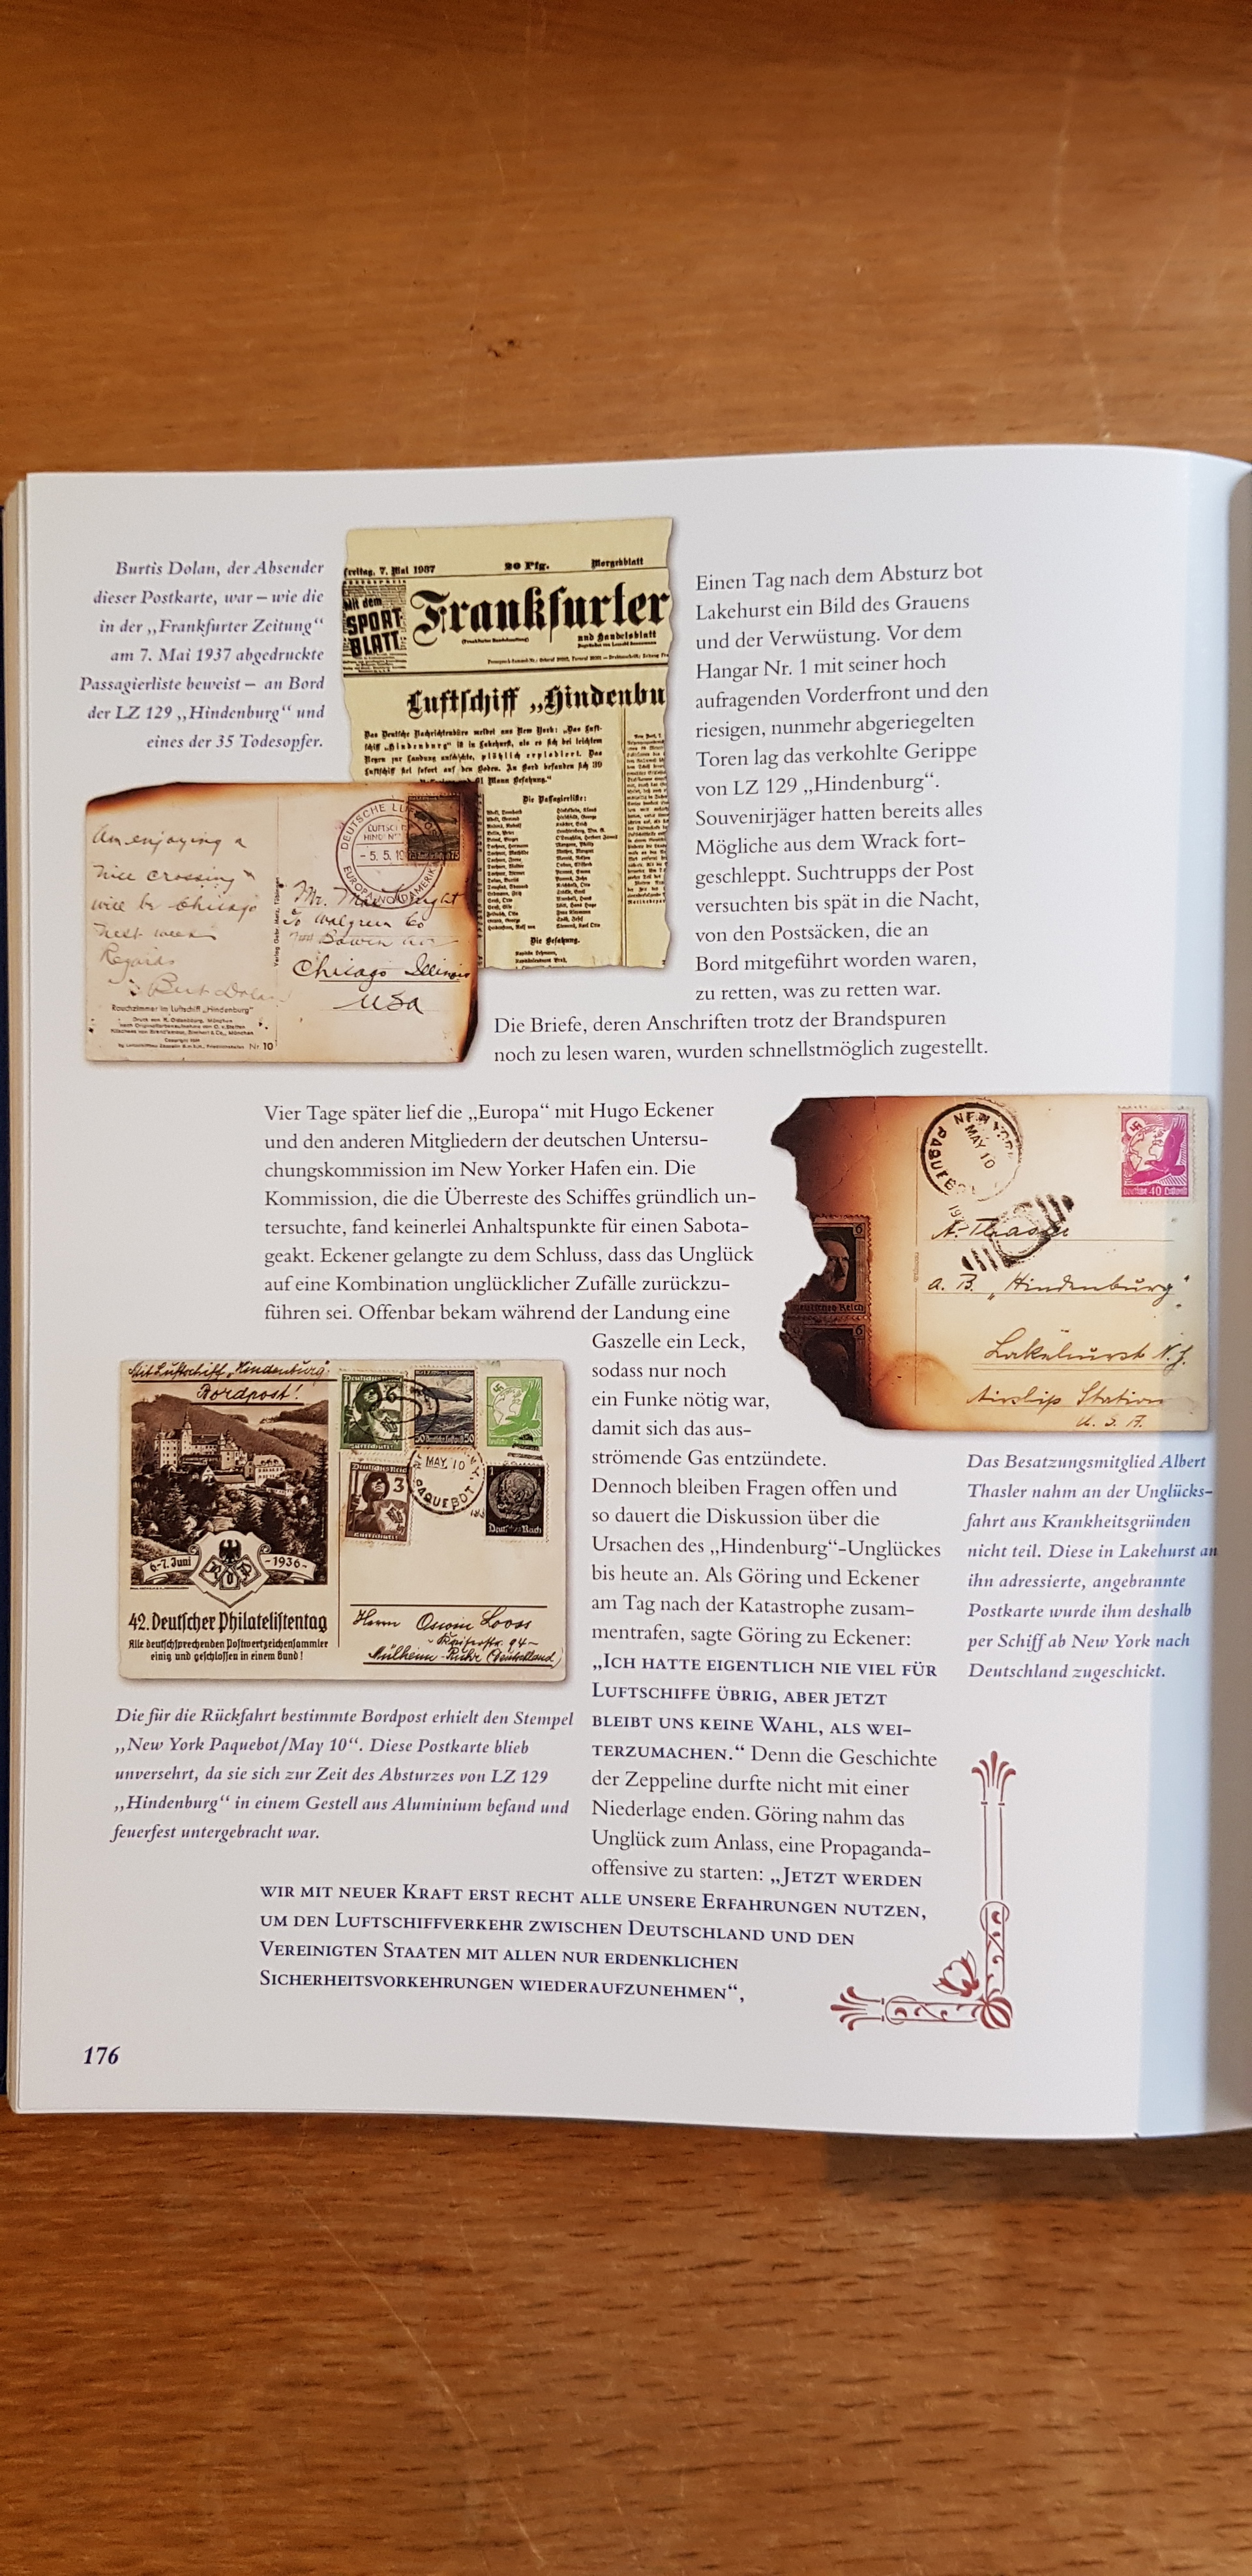 Burtis Dolan, der Absender
dieser Postkarte, war – wie die
in der „Frankfurter Zeitung“
am 7. Mai 1937 abgedruckte
Passagierliste beweist – an Bord
der LZ 129 „Hindenburg“ und
eines der 35 Todesopfer.
Freitag, 7. Mai 1937 20 Pfg. Morgenblatt
Mit dem
SPORT
BLATT
Frankfurter
und Handelsblatt
Luftschiff „Hindenbu
Das Deutsche Nachrichtenbüro meldet aus New York: „Das Luft-
schiff „Hindenburg“ ist in Lakehurst, als es sich bei leichtem
Regen zur Landung anschickte, plötzlich explodiert. Das
Luftschiff fiel sofort auf den Boden. An Bord befanden sich 39
Mann Besatzung.“
Die Passagierliste:
Die Besatzung.
Einen Tag nach dem Absturz bot
Lakehurst ein Bild des Grauens
und der Verwüstung. Vor dem
Hangar Nr. 1 mit seiner hoch
aufragenden Vorderfront und den
riesigen, nunmehr abgeriegelten
Toren lag das verkohlte Gerippe
von LZ 129 „Hindenburg“.
Souvenirjäger hatten bereits alles
Mögliche aus dem Wrack fort-
geschleppt. Suchtrupps der Post
versuchten bis spät in die Nacht,
von den Postsäcken, die an
Bord mitgeführt worden waren,
zu retten, was zu retten war.
Die Briefe, deren Anschriften trotz der Brandspuren
noch zu lesen waren, wurden schnellstmöglich zugestellt.
Am enjoying a
nice crossing
will be Chicago
next week
Regards
Burt Dolan
Rauchzimmer im Luftschiff „Hindenburg“
Nr 10
DEUTSCHE LUFTPOST
- 5. 5. 19
EUROPA NORDAMERIKA
Mr.
Walgreen Co
Bowen
Chicago Illinois
USA
Vier Tage später lief die „Europa“ mit Hugo Eckener
und den anderen Mitgliedern der deutschen Untersu-
chungskommission im New Yorker Hafen ein. Die
Kommission, die die Überreste des Schiffes gründlich un-
tersuchte, fand keinerlei Anhaltspunkte für einen Sabota-
geakt. Eckener gelangte zu dem Schluss, dass das Unglück
auf eine Kombination unglücklicher Zufälle zurückzu-
führen sei. Offenbar bekam während der Landung eine
Gaszelle ein Leck,
sodass nur noch
ein Funke nötig war,
damit sich das aus-
strömende Gas entzündete.
Dennoch bleiben Fragen offen und
so dauert die Diskussion über die
Ursachen des „Hindenburg“-Unglückes
bis heute an. Als Göring und Eckener
am Tag nach der Katastrophe zusam-
mentrafen, sagte Göring zu Eckener:
„Ich hatte eigentlich nie viel für
Luftschiffe übrig, aber jetzt
bleibt uns keine Wahl, als wei-
terzumachen.“ Denn die Geschichte
der Zeppeline durfte nicht mit einer
Niederlage enden. Göring nahm das
Unglück zum Anlass, eine Propaganda-
offensive zu starten: „Jetzt werden
wir mit neuer Kraft erst recht alle unsere Erfahrungen nutzen,
um den Luftschiffverkehr zwischen Deutschland und den
Vereinigten Staaten mit allen nur erdenklichen
Sicherheitsvorkehrungen wiederaufzunehmen“,
NEW YORK
MAY 10
PAQUEBOT
Deutsche 40 Luftpost
6
Deutsches Reich
A. Thasler
a. B. „Hindenburg“
Lakehurst N.J.
Airship Station
U. S. A.
Das Besatzungsmitglied Albert
Thasler nahm an der Unglücks-
fahrt aus Krankheitsgründen
nicht teil. Diese in Lakehurst an
ihn adressierte, angebrannte
Postkarte wurde ihm deshalb
per Schiff ab New York nach
Deutschland zugeschickt.
Mit Luftschiff „Hindenburg“
Bordpost!
6-7. Juni -1936-
42. Deutscher Philatelistentag
Alle deutschsprechenden Postwertzeichensammler
einig und geschlossen in einem Bund!
6
50 50
3
MAY 10
PAQUEBOT
1
Herrn Looss
Mülheim-Ruhr (Deutschland)
Die für die Rückfahrt bestimmte Bordpost erhielt den Stempel
„New York Paquebot/May 10“. Diese Postkarte blieb
unversehrt, da sie sich zur Zeit des Absturzes von LZ 129
„Hindenburg“ in einem Gestell aus Aluminium befand und
feuerfest untergebracht war.
176